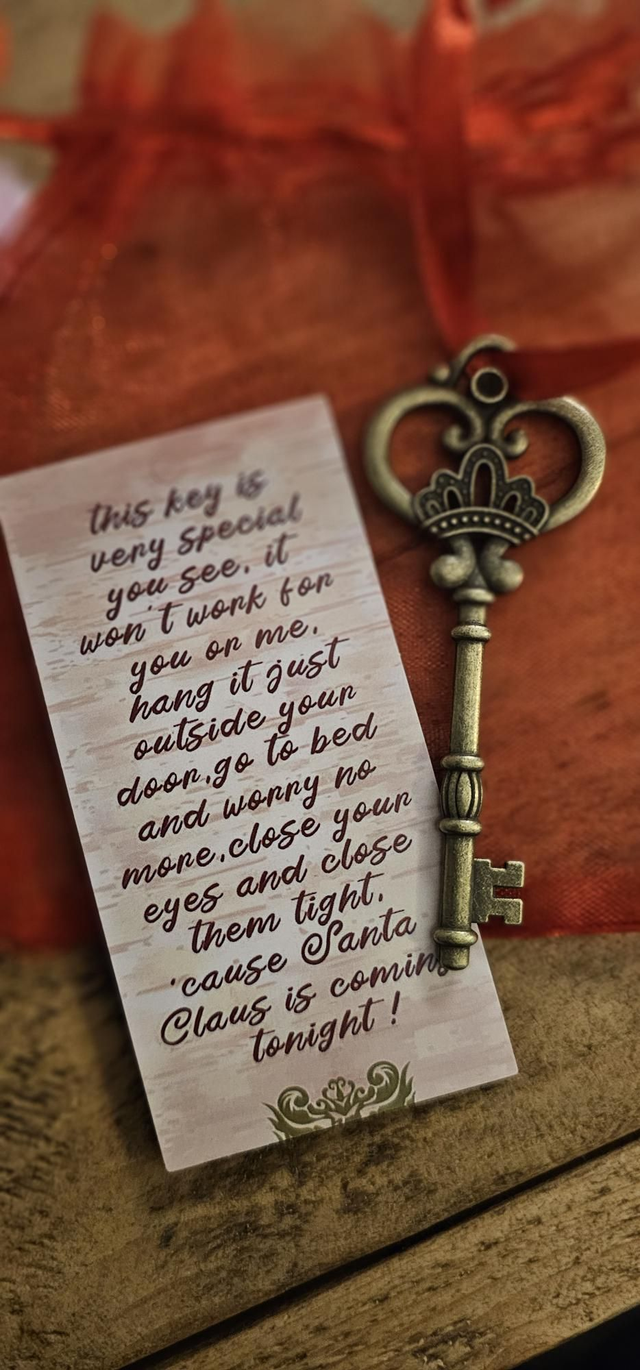 this key is
very special
you see, it
won't work for
you or me,
hang it just
outside your
door,go to bed
and worry no
more,close your
eyes and close
them tight,
'cause Santa
Claus is coming
tonight !